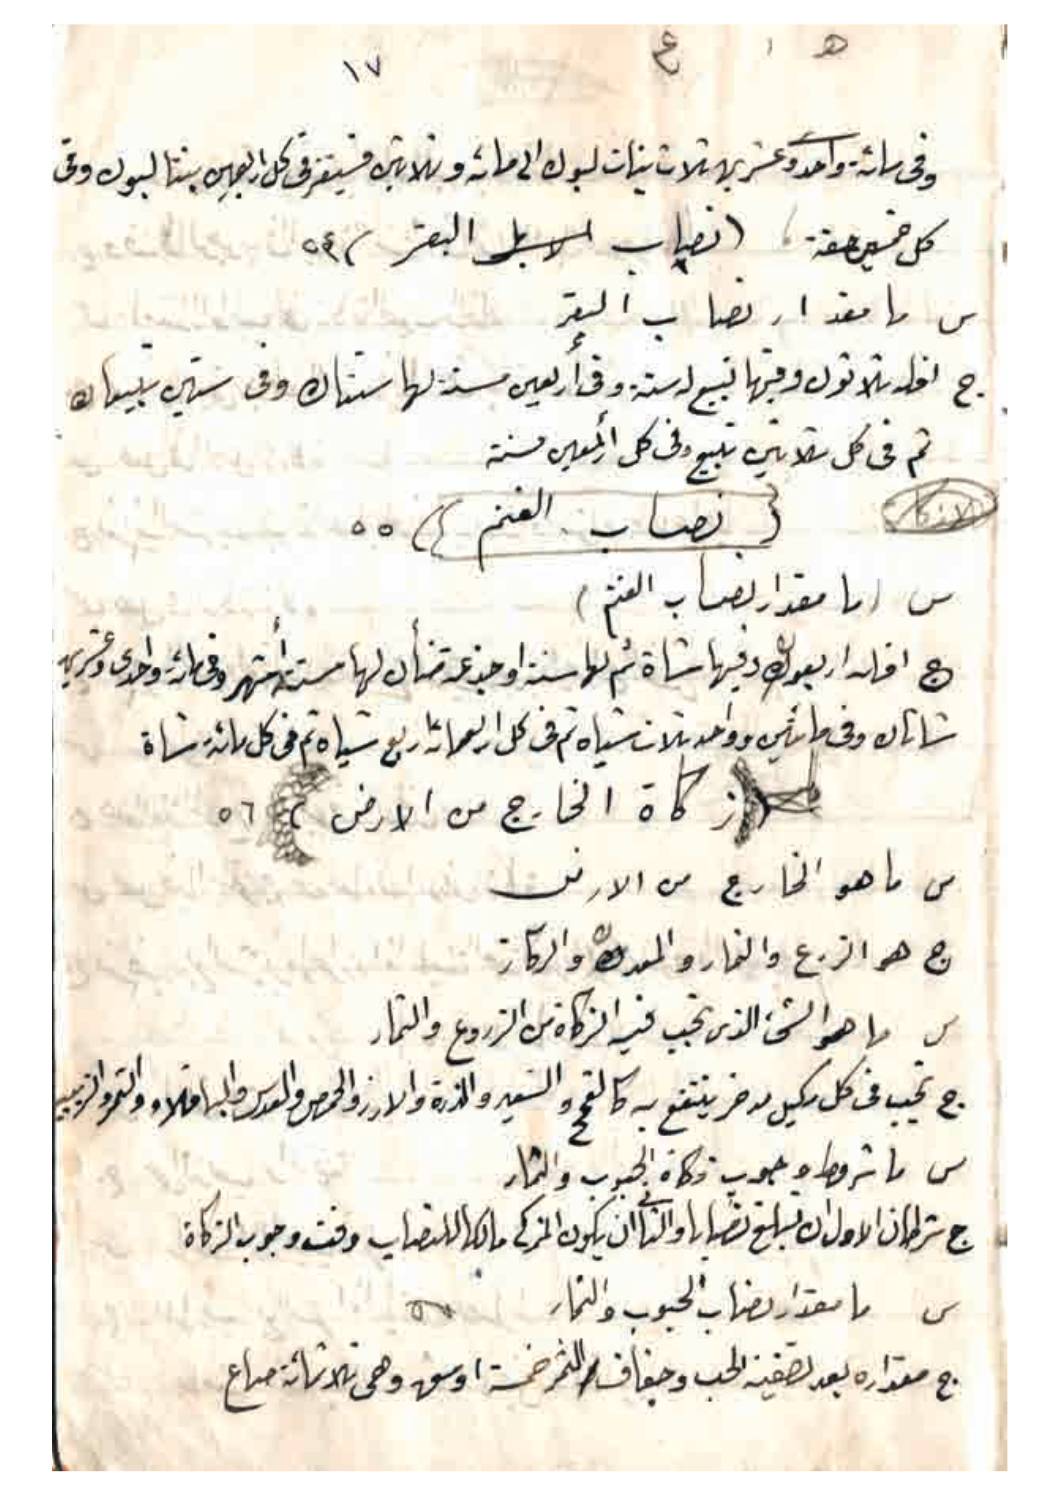 ه ١ ع
١٧
وفى مائة واحد وعشرين ثلاث بنات لبون الى مائة وثلاثين فيستقر فى كل اربعين بنتا لبون وفى
كل خمسين حقة ( نصاب الابل البقر ) ٥٤
س ما مقدار نصاب البقر
ج اقله ثلاثون وفيها تبيع له سنة وفى أربعين مسنة لها سنتان وفى ستين تبيعان
ثم فى كل ثلاثين تبيع وفى كل أربعين مسنة
( نصاب الغنم ) ٥٥
س ( ما مقدار نصاب الغنم )
ج اقله اربعون وفيها شاة تم لها سنة او جذعة ضأن لها ستة أشهر وفى مائة واحدى وعشرين
شاتان وفى مائتين وواحد ثلاث شياه ثم فى كل اربعمائة اربع شياه ثم فى كل مائة شاة
( زكاة الخارج من الارض ) ٥٦
س ما هو الخارج من الارض
ج هو الزرع والثمار والمعدن والركاز
س ما هو الشئ الذى تجب فيه الزكاة من الزروع والثمار
ج تجب فى كل مكيل مدخر ينتفع به كالقمح والشعير والذرة والارز والحمص والعدس والباقلاء والتمر والزبيب
س ما شروط وجوب زكاة الحبوب والثمار
ج شرطان الاول ان يبلغ نصابا والثانى ان يكون المزكى مالكا للنصاب وقت وجوب الزكاة
س ما مقدار نصاب الحبوب والثمار
ج مقداره بعد تصفية الحب وجفاف الثمر خمسة اوسق وهى ثلاثمائة صاع